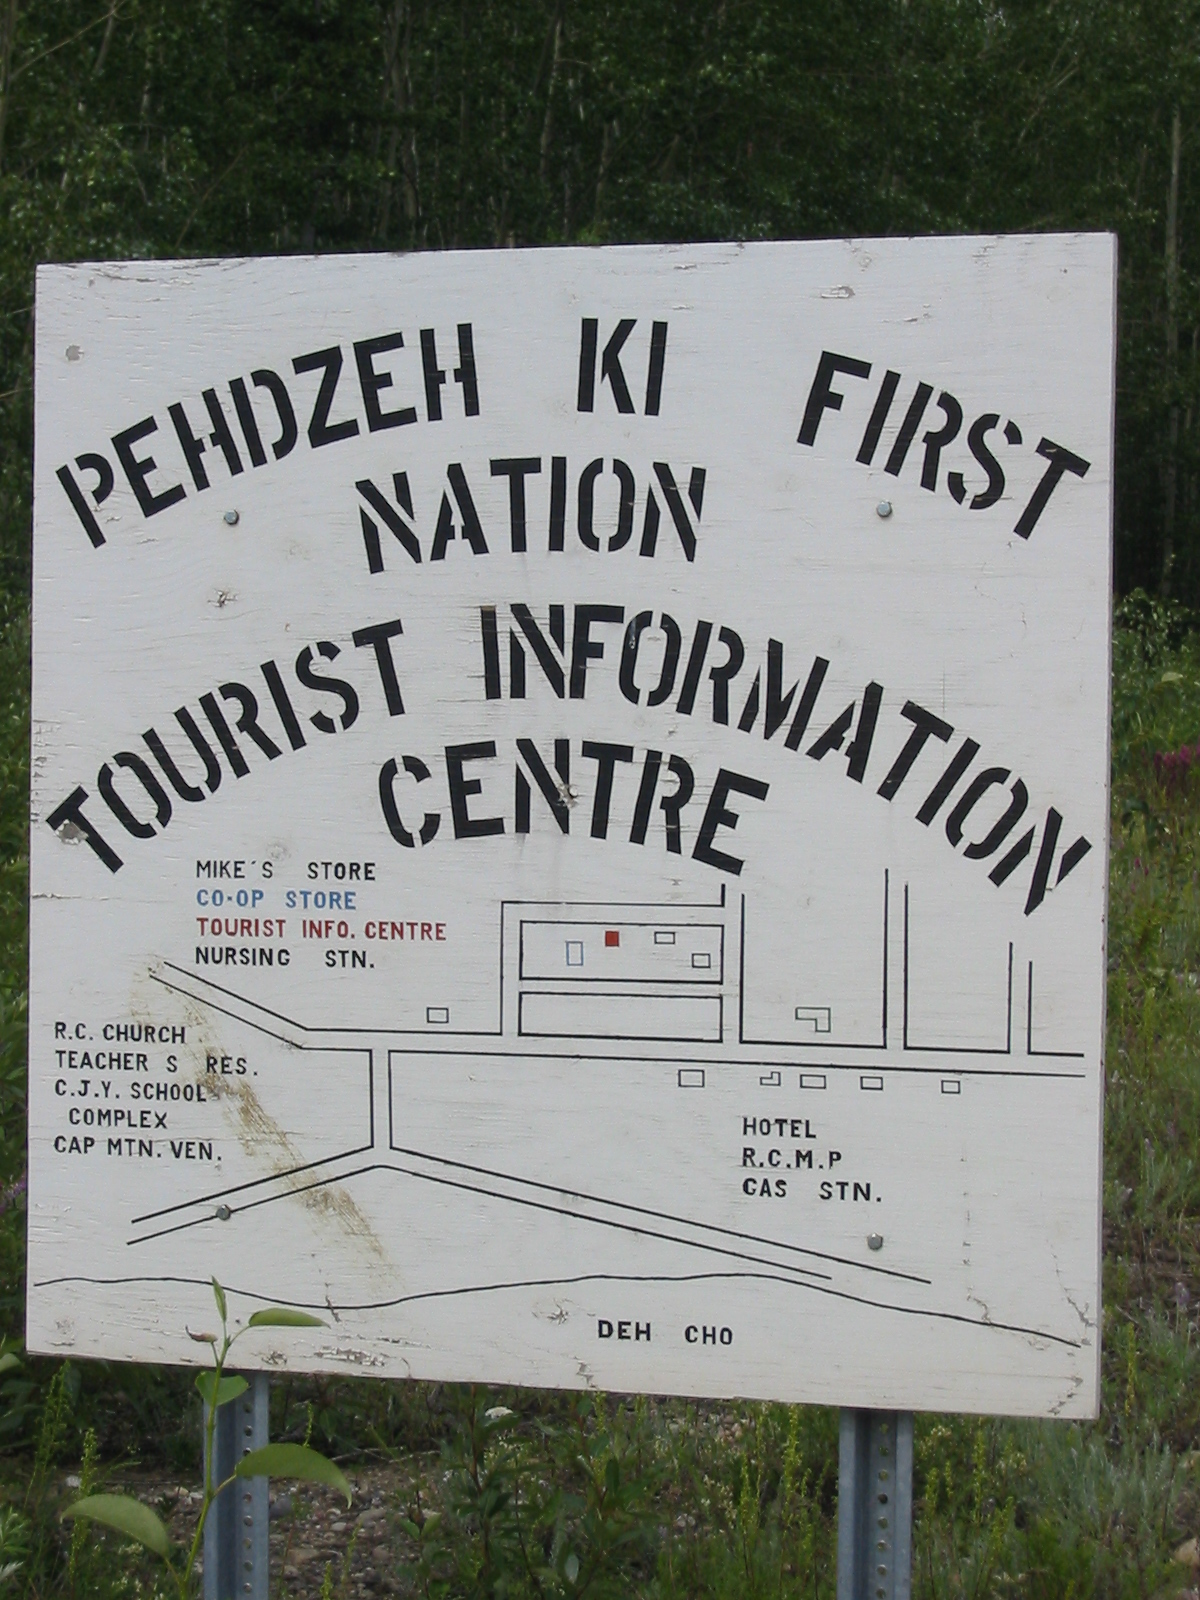 PEHDZEH KI FIRST
NATION
TOURIST INFORMATION
CENTRE
MIKE'S STORE
CO-OP STORE
TOURIST INFO. CENTRE
NURSING STN.
R.C. CHURCH
TEACHER S RES.
C.J.Y. SCHOOL
COMPLEX
CAP MTN. VEN.
HOTEL
R.C.M.P
GAS STN.
DEH CHO